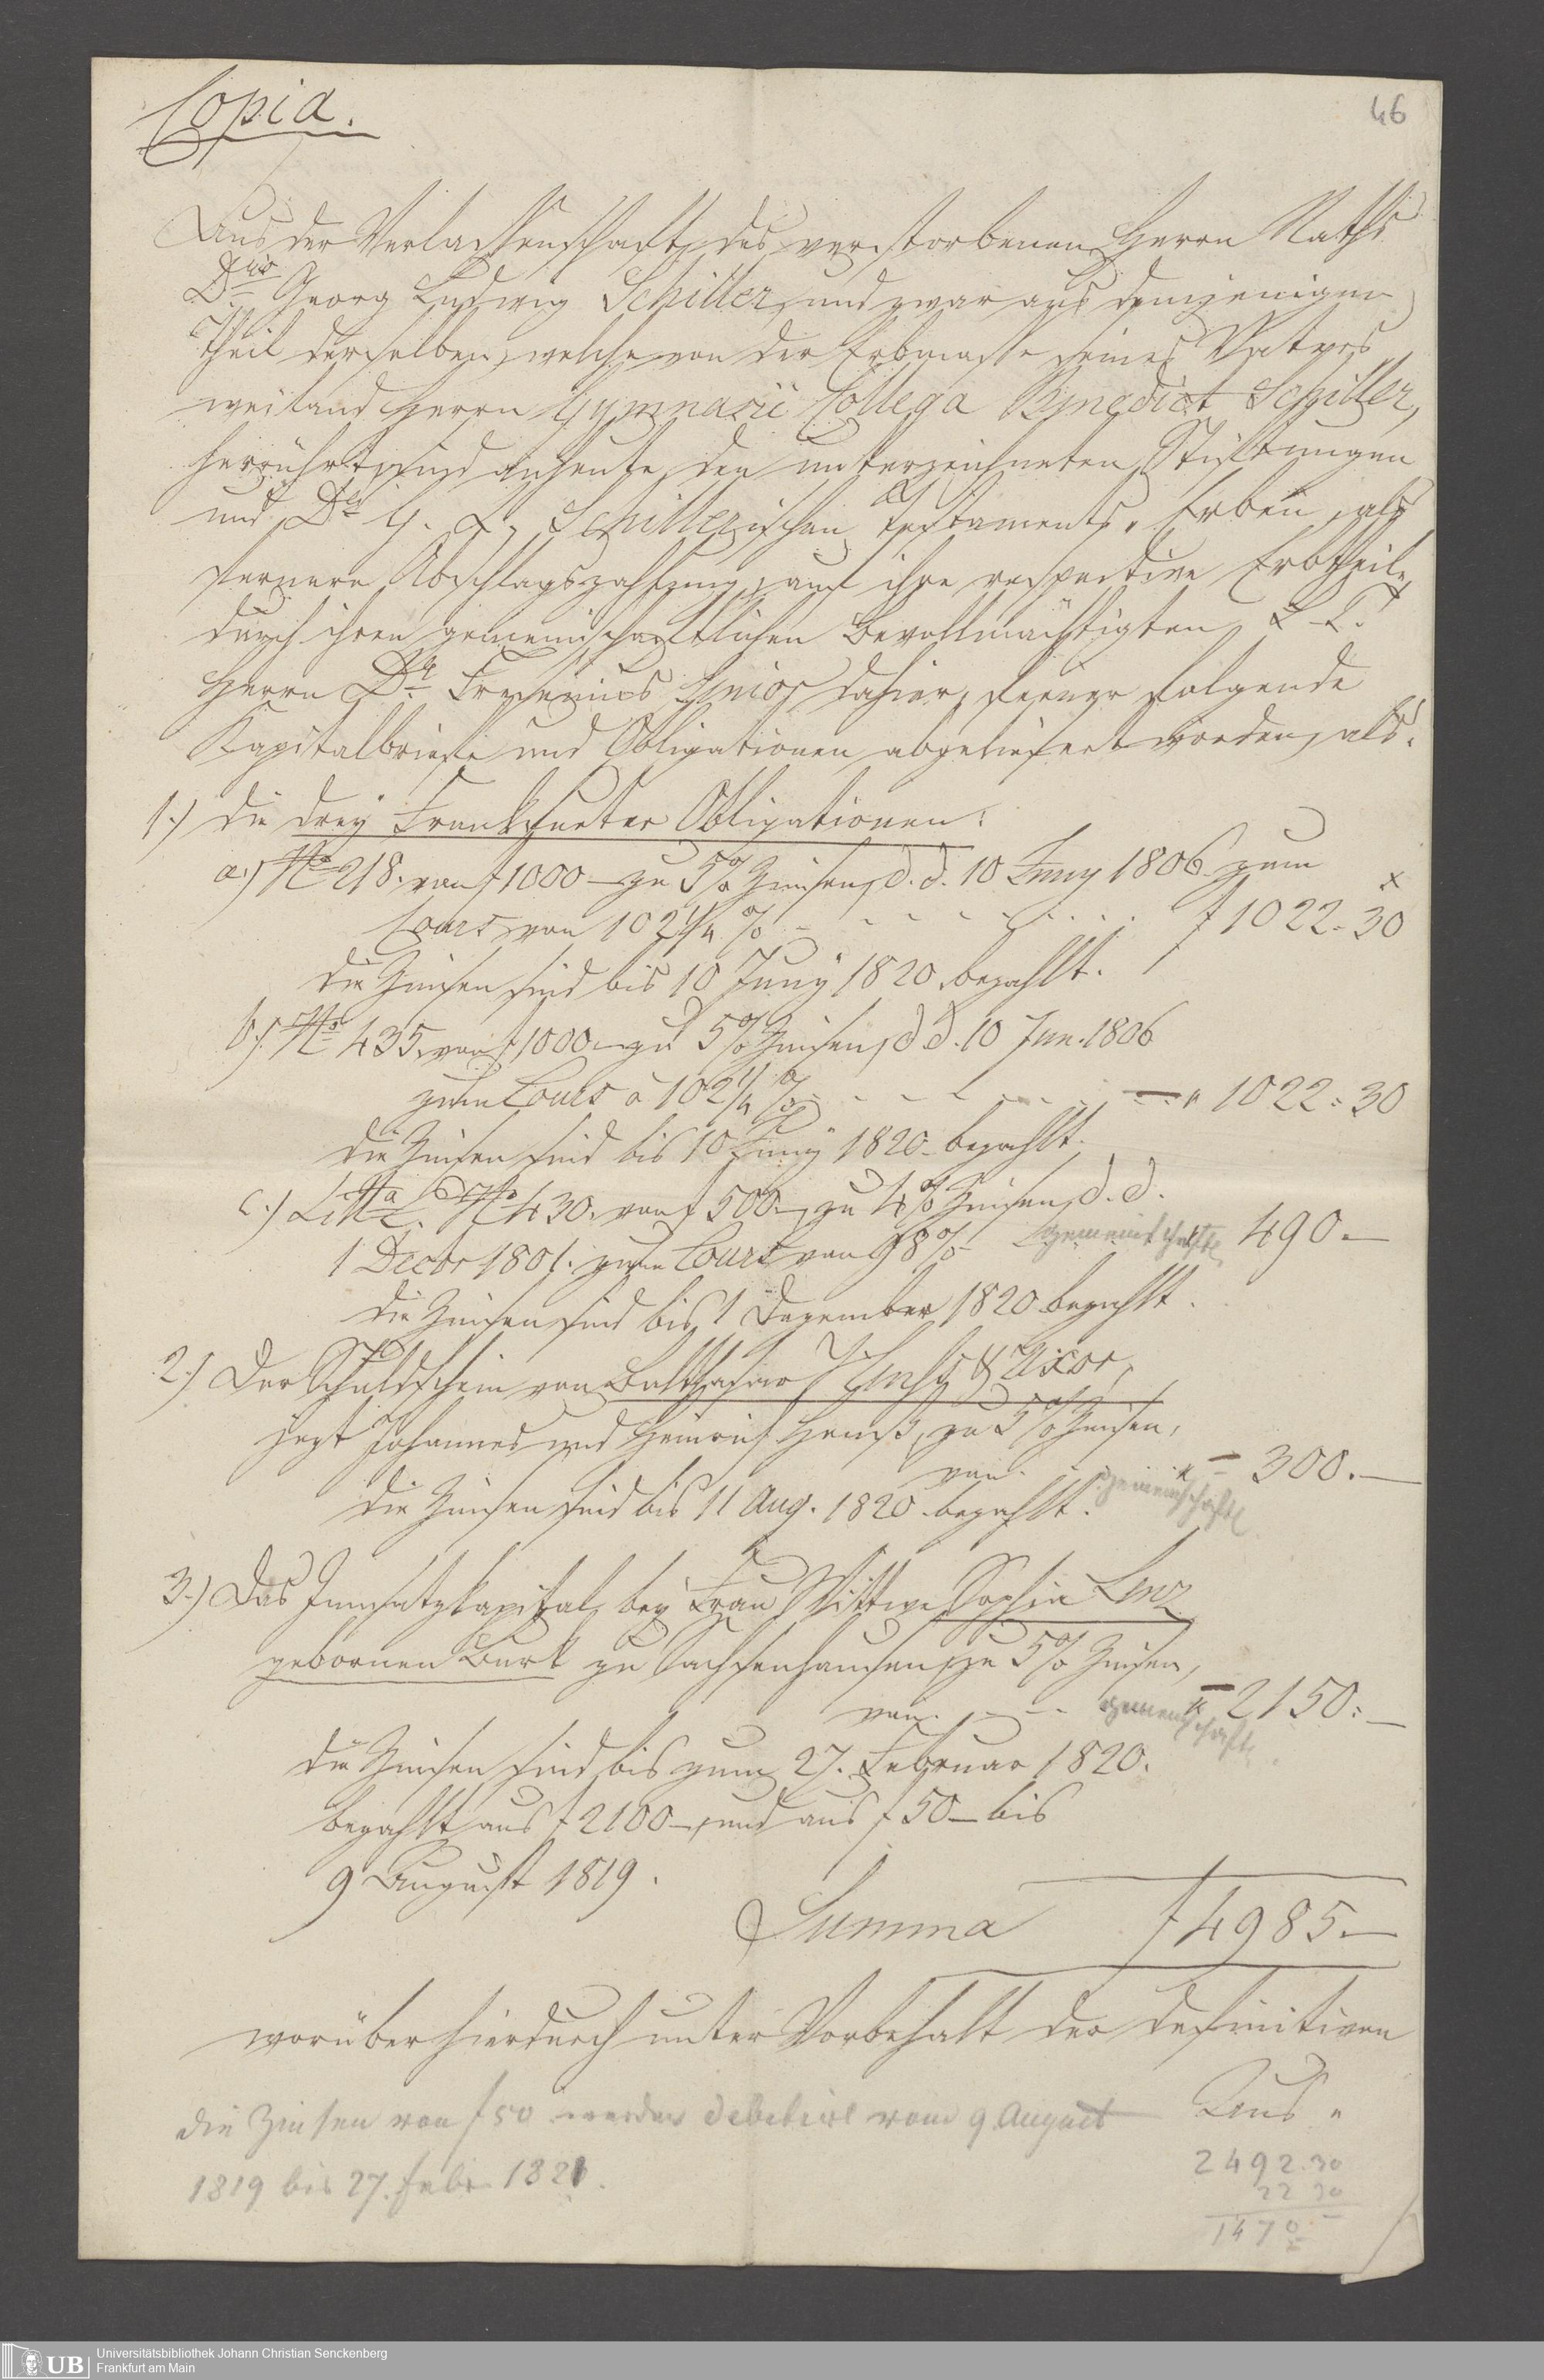 Copia.
46
Aus der Verlassenschaft des verstorbenen Herrn Raths
Dris Georg Ludwig Schiller, und zwar aus demjenigen
Theil derselben, welche von der Erbmasse seines Vaters
weiland Herrn Gymnasii Collega Benedict Schiller,
herrührt, sind anheute den unterzeichneten Stiftungen
und Dr. G. L. Schillerischen Testaments-Erben, als
fernere Abschlagszahlung, auf ihre respective Erbtheile
durch ihren gemeinschaftlichen Bevollmächtigten
Herrn Dr. Fresenius Senior dahier, ferner folgende
Kapitalbriefe und Obligationen abgeliefert worden, als:
1.) die drey Frankfurter Obligationen:
a.) No 218. von f 1000 – zu 5% Zinsen, d. d. 10 Juny 1806 zum
x
Cours von 102 1/4 % - - - - - - - - f 1022 = 30
die Zinsen sind bis 10 Juny 1820 bezahlt.
b.) No 435. von f 1000 – zu 5% Zinsen, d. d. 10 Jun. 1806
zum Cours à 102 1/4 % - - - - - - " 1022 = 30
die Zinsen sind bis 10 Juny 1820 bezahlt.
c.) Litta C. No 430. von f 500 – zu 4% Zinsen, d. d.
1 Decbr 1801. zum Cours von 98% - gemeinschaftl 490. —
die Zinsen sind bis 1 Dezember 1820 bezahlt.
2.) Der Schuldschein von Balthasar & Uxor,
jezt Johannes und Heinrich zu 5% Zinsen,
von - - " 300. —
gemeinschaftl
die Zinsen sind bis 11 Aug. 1820 bezahlt.
3.) Das Innsatzkapital bey Frau Wittwe Sophia
gebornen Burk zu Sachsenhausen, zu 5% Zinsen,
von - - - " 2150: —
gemeinschaftl
die Zinsen sind bis zum 27. Februar 1820.
bezahlt aus f 2100 –, und aus f 50 – bis
9 August 1819.
Summa f 4985. —
worüber hierdurch unter Vorbehalt der definitiven
Aus "
die Zinsen von f 50 werden debetirt vom 9 August
1819 bis 27. Febr 1821.
2492.30
22 30
1470
Universitätsbibliothek Johann Christian Senckenberg
Frankfurt am Main
UB